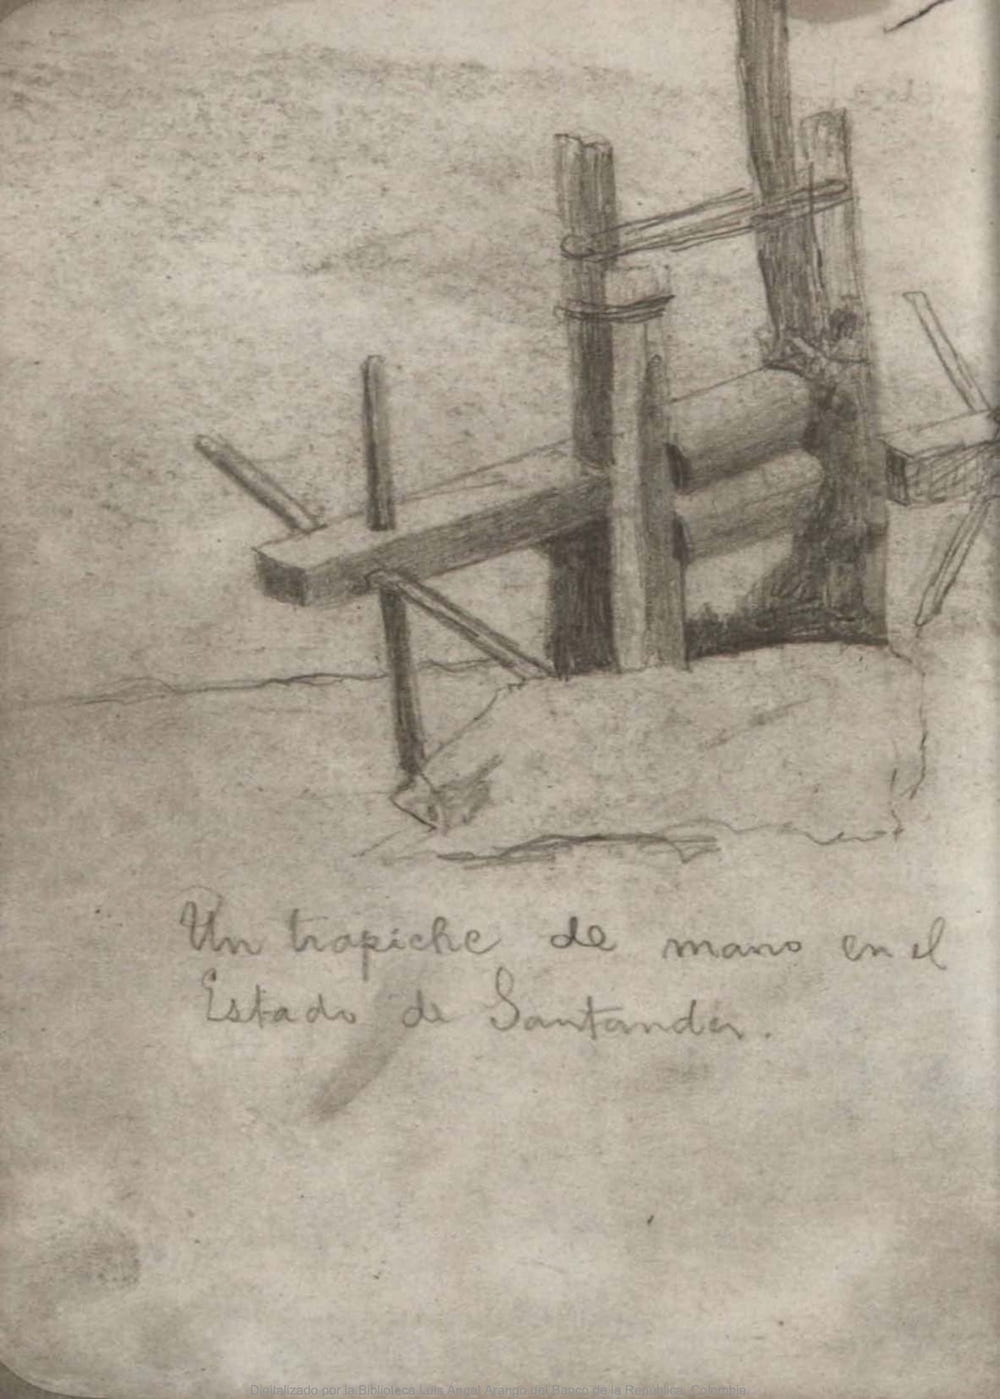 Un trapiche de mano en el
Estado de Santander.
Digitalizado por la Biblioteca Luis Angel Arango del Banco de la República, Colombia.